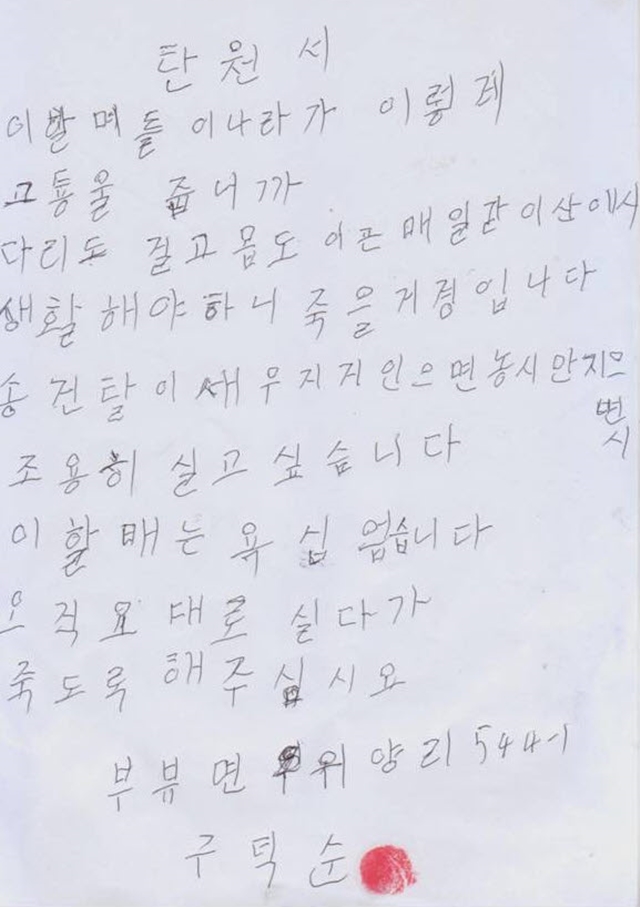 탄원서
이발며들 이나라가 이렇레
고통울 줍니까
다리도 절고몸도 아픈 매일같이산에서
생활해야하니 죽을거령입니다
송전탈이 세우지지안으면농시안지므
번시
조용히 실고싶습니다
이할매는 욕심 업습니다
오직요대로 실다가
죽도록해주십시요
부뷰면 위양리544-1
구덕순